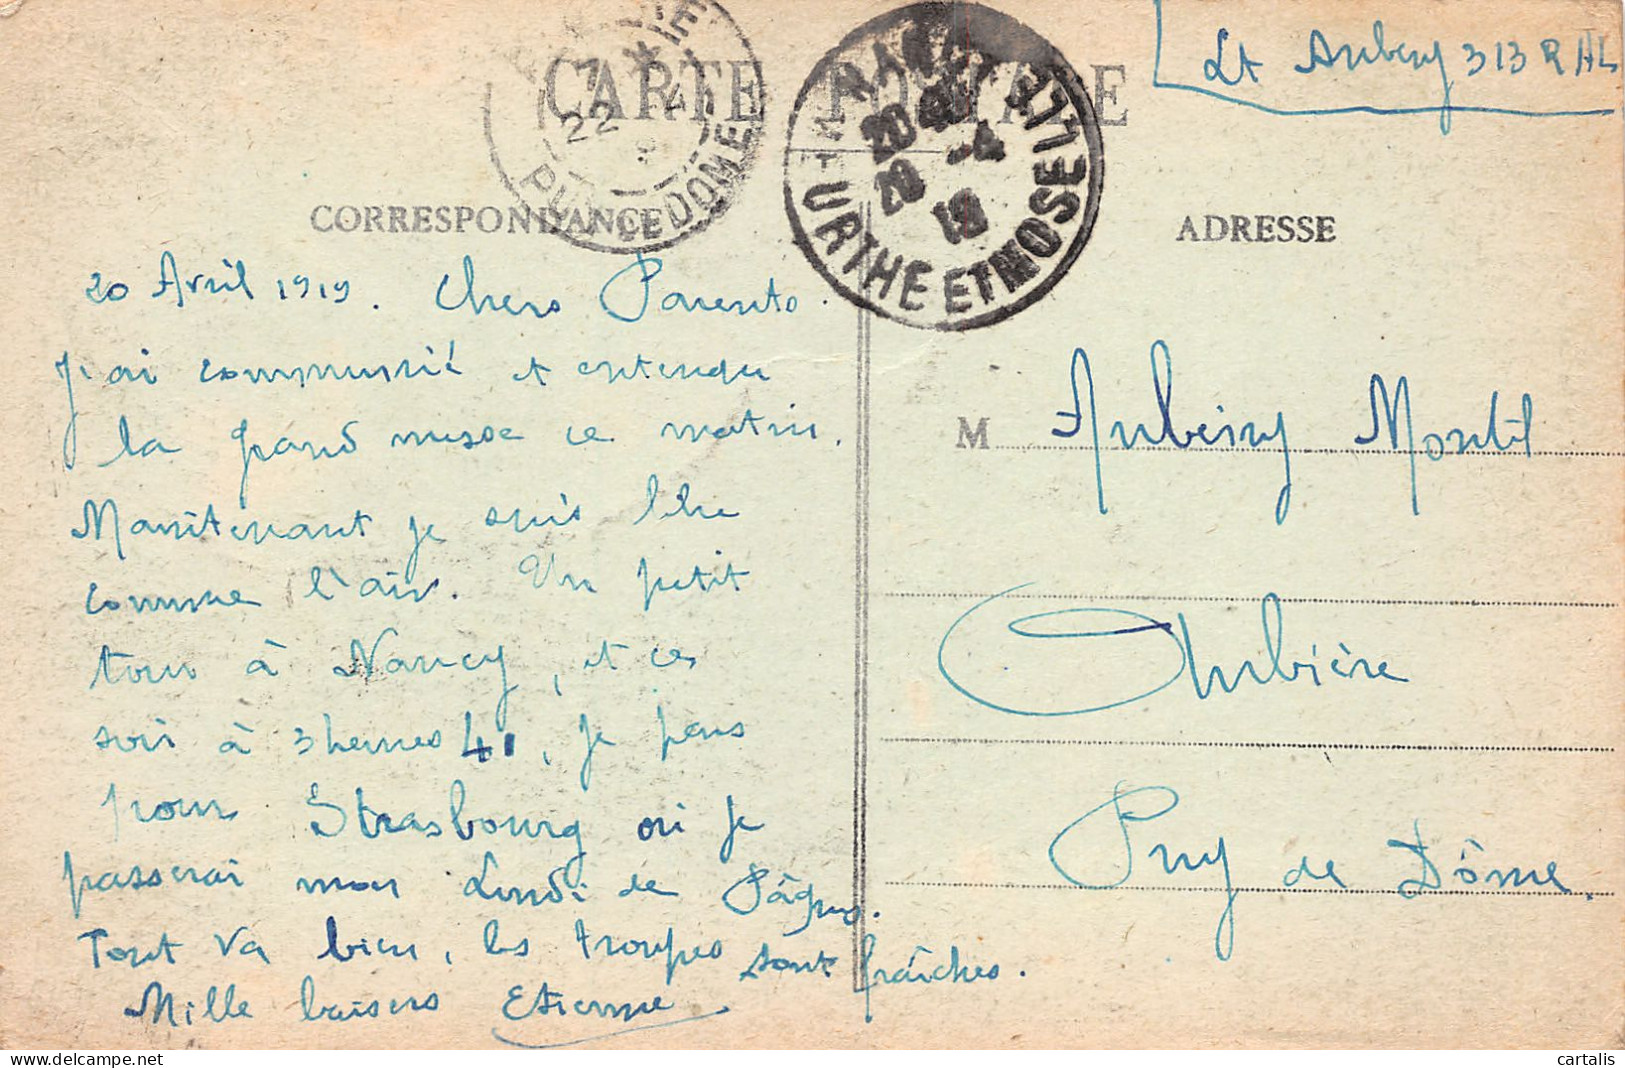 Lt Aubery 313 R AL
CARTE POSTALE
CORRESPONDANCE
ADRESSE
PUY DE DOME
22
NANCY
20 -4
20 19
MEURTHE ET MOSELLE
20 Avril 1919. Chers Parents.
J'ai communié et entendu
la grand messe ce matin.
Maintenant je suis libre
comme l'air. Un petit
tour à Nancy, et ce
soir à 3 heures 41, je pars
pour Strasbourg où je
passerai mon Lundi de Pâques.
Tout va bien, les troupes sont fraîches.
Mille baisers Etienne
M Aubery Montel
Aubière
Puy de Dôme.
cartalis